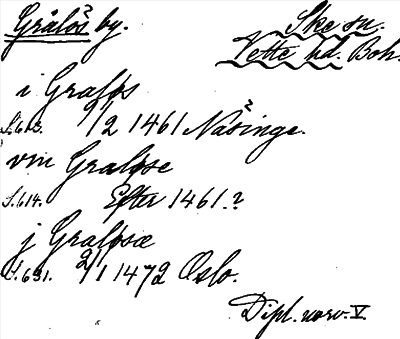 Grålös by.
Skee sn.
Vette hd. Boh.
i Graløs
S. 613. 1/2 1461 Näsinge.
vm Graløse
S. 614. Efter 1461.?
j Graløsæ
S. 631. 2/1 1472 Oslo.
Dipl. norv. V.